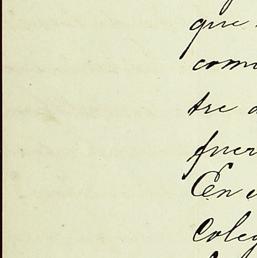 que
com
tre
fuer
En
Coleg